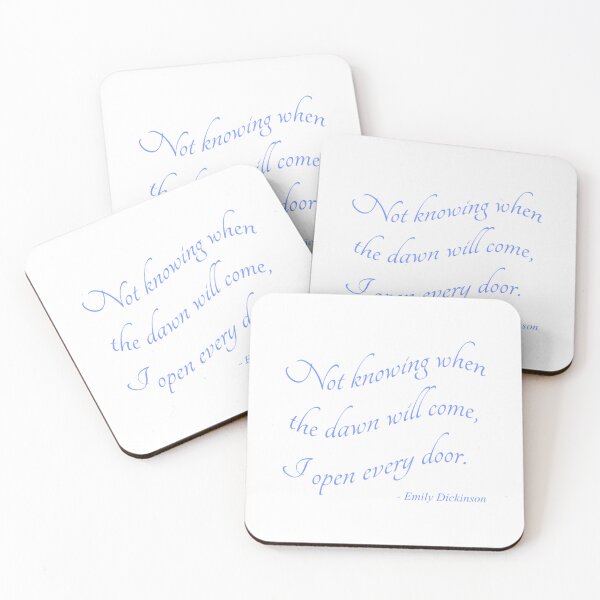 Not knowing when
the will come,
Not knowing when
the dawn will come,
I open every door.
Not knowing when
the dawn will come,
I open every do
Not knowing when
the dawn will come,
I open every door.
- Emily Dickinson